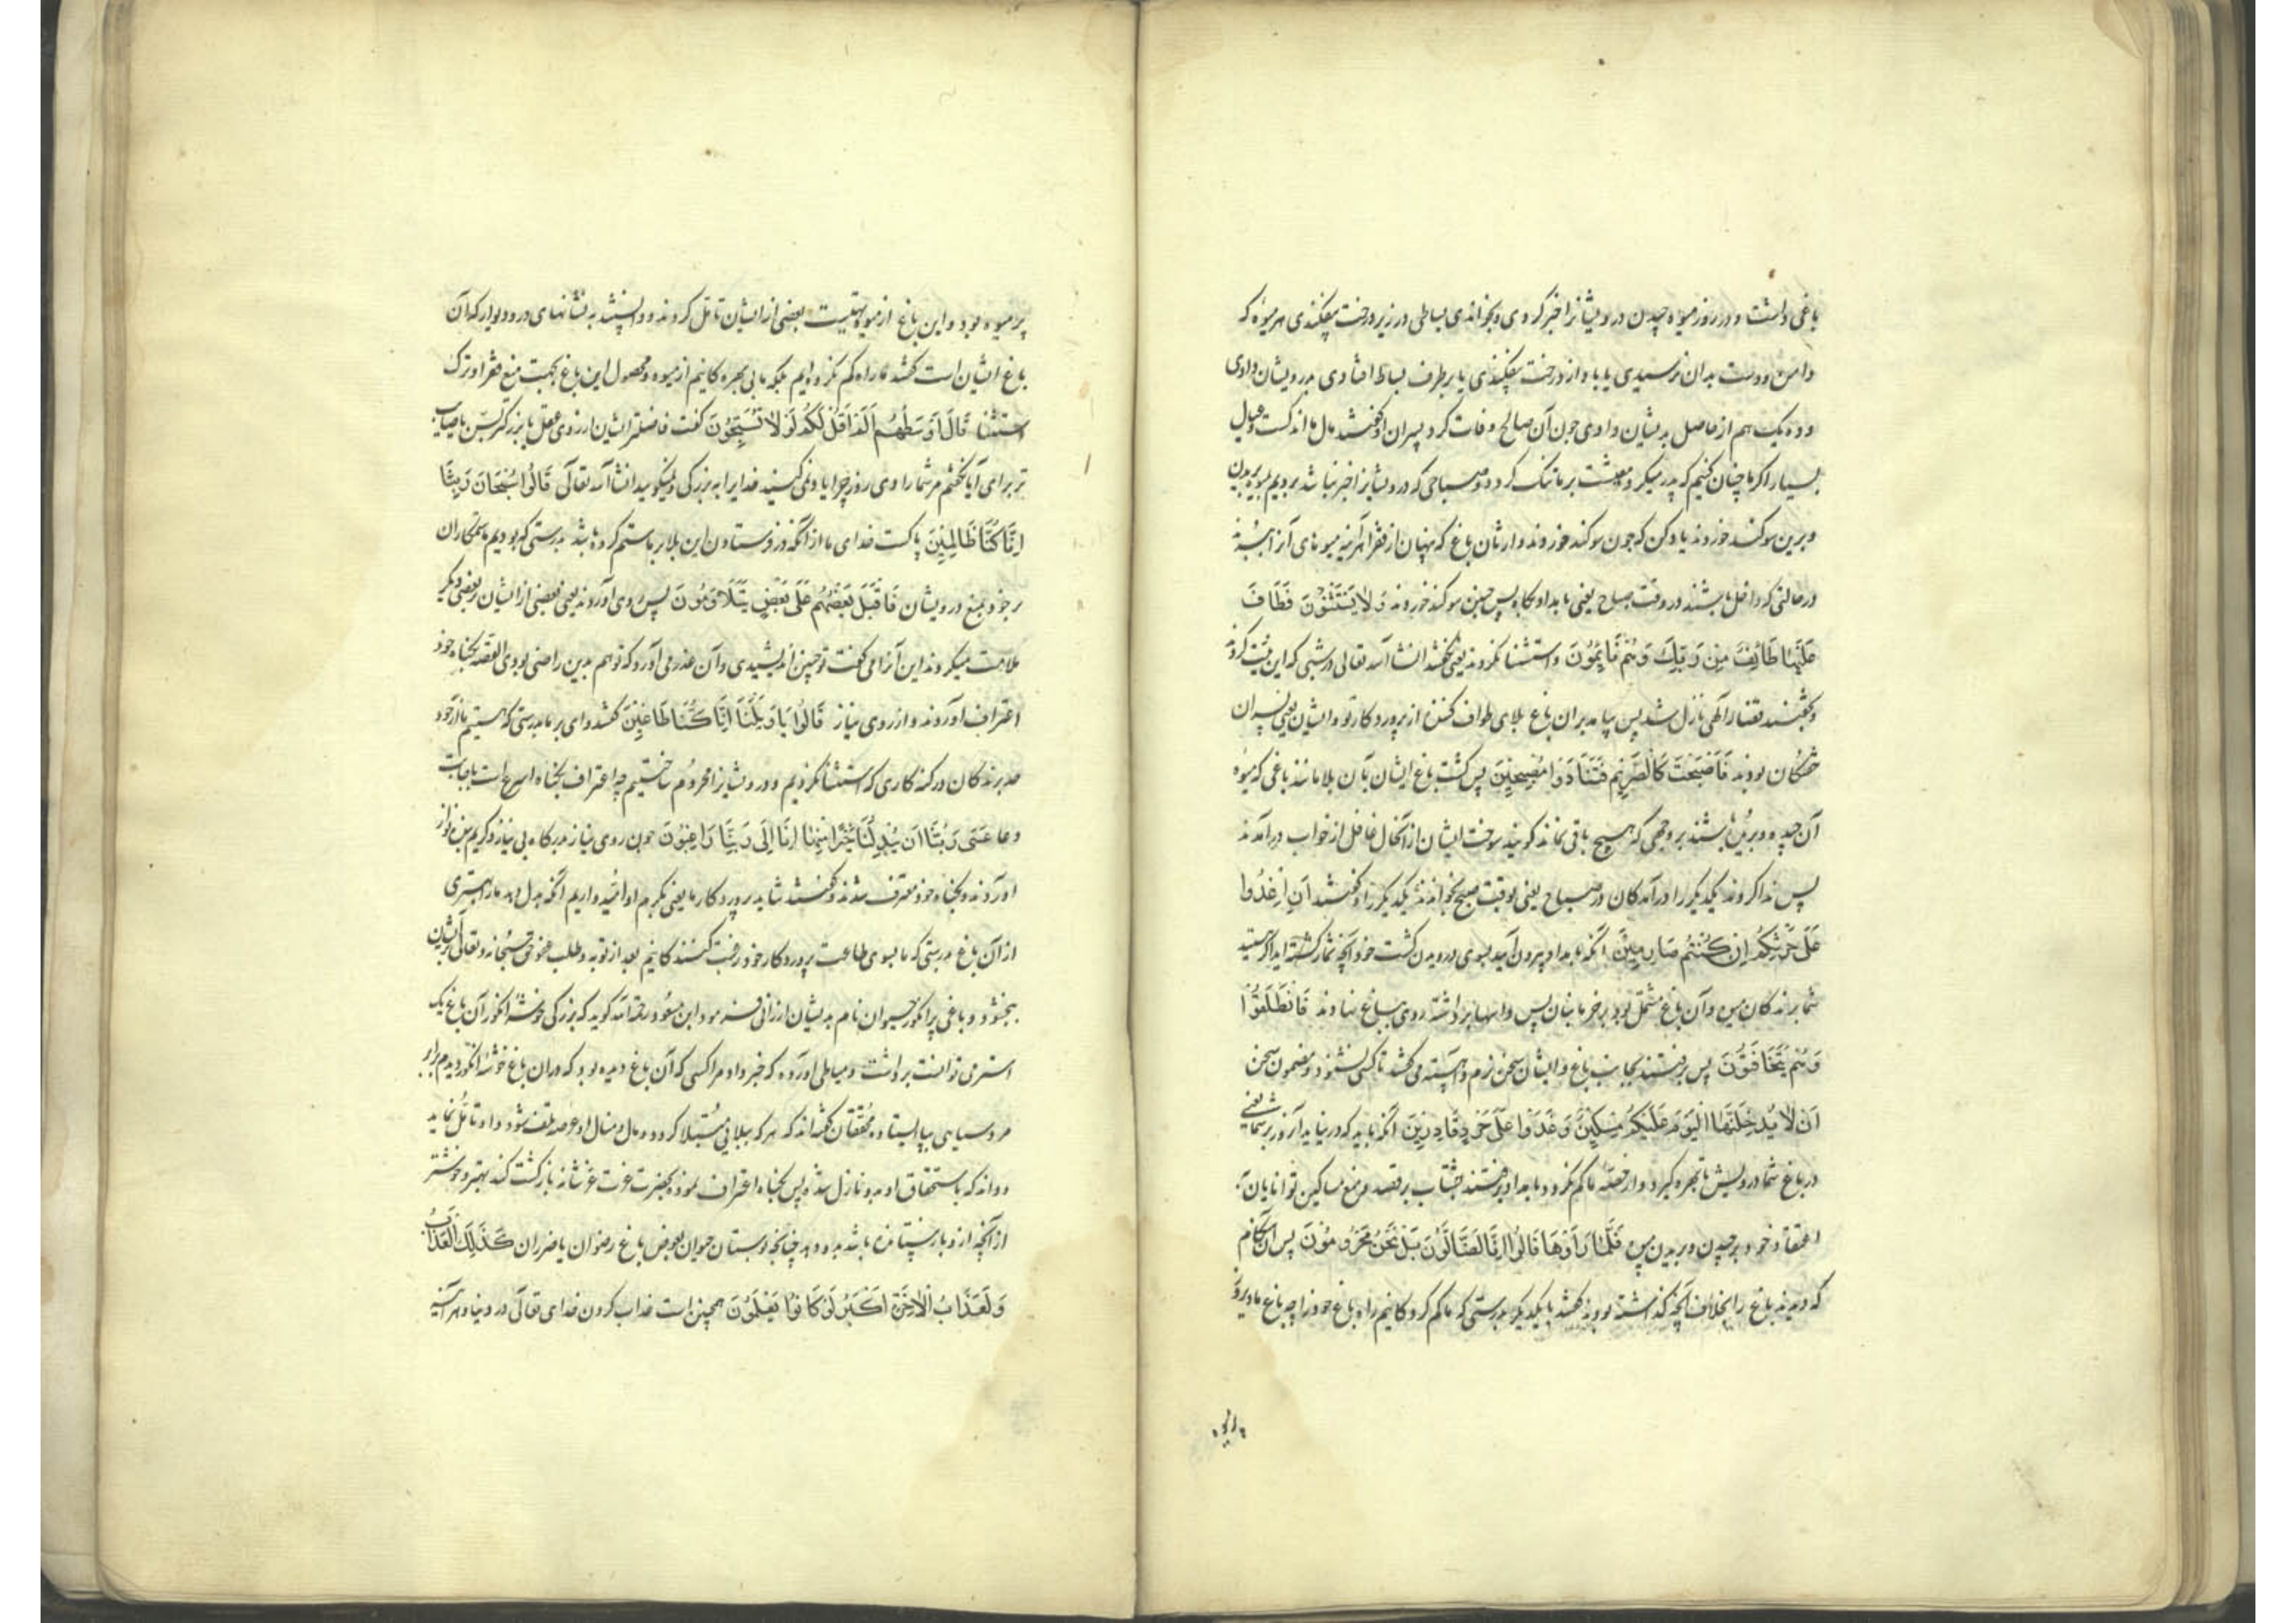 باغی داشت و در روز میوه چیدن درویشانرا خبر کردی و بخواندی بساطی در زیر درخت بیفکندی هر میوه که
دامن و دست بدان نرسیدی یا باد از درخت بیفکندی یا بر طرف بساط افتادی بدرویشان دادی
و ده یک هم از حاصل بدیشان دادی چون آن صالح وفات کرد پسران او گفتند مال ما اندکست و عیال
بسیار اگر ما چنان کنیم که پدر میکرد معیشت بر ما تنک کردد صباحی که درویشانرا خبر نباشد برویم
و برین سوکند خوردند یاد کن که چون سوکند خوردند وارثان باغ که پنهان از فقرا هر آینه میوهای آنرا
در حالتی که داخل باشند در وقت صباح یعنی بامداد پکاه پس چنین سوکند خوردند وَلَا یَسْتَثْنُونَ فَطَافَ
عَلَیْهَا طَائِفٌ مِنْ رَبِّكَ وَهُمْ نَائِمُونَ و استثنا نکردند یعنی نکفتند انشاء الله تعالی در شبی که این نیت کردند
و بخفتند قضا را الهی نازل شد پس پیامد بران باغ بلای طواف کننده از پروردکار تو و ایشان یعنی پسران
خفتکان بودند فَأَصْبَحَتْ كَالصَّرِیمِ فَتَنَادَوْا مُصْبِحِینَ پس کشت باغ ایشان بآن بلا مانند باغی که میوه
آن چیده و بریده باشند بر وجهی که هیچ باقی نماند کویند سوخت ایشان از آنحال غافل از خواب درآمدند
پس ندا کردند یکدیکر را درآمدکان در صباح یعنی بوقت صبح بخواندند یکدیکر را و گفتند أَنِ اغْدُوا
عَلَى حَرْثِكُمْ إِنْ كُنْتُمْ صَارِمِینَ آنکه بامداد بیرون آیید بسوی درویدن کشت خود آنچه شما کشته‌اید اگر هستید
شما برندکان میوه و آن باغ مشتمل بود بر خرمابنان پس داسها برداشته روی بباغ نهادند فَانْطَلَقُوا
وَهُمْ یَتَخَافَتُونَ پس برفتند بجانب باغ و ایشان سخن نرم و آهسته می کفتند تا کسی نشنود و مضمون سخن
أَنْ لَا یَدْخُلَنَّهَا الْیَوْمَ عَلَیْكُمْ مِسْكِینٌ وَغَدَوْا عَلَى حَرْدٍ قَادِرِینَ آنکه باید که در نیاید امروز بر شما یعنی
در باغ شما درویش تا بهره کیرد و از حصه ما کم نکردد و بامداد برفتند بشتاب بر قصد و منع مساکین توانایان
اعتقاد خود بر چیدن و بریدن میوه فَلَمَّا رَأَوْهَا قَالُوا إِنَّا لَضَالُّونَ بَلْ نَحْنُ مَحْرُومُونَ پس آن هنکام
که دیدند باغ را بخلاف آنچه کذاشته بودند کفتند با یکدیکر بدرستی که ما کم کردکانیم راه باغ خود را چه باغ ما دیروز
پر میوه بود و این باغ از میوه تهیست بعضی از ایشان تامل کردند و دانستند به نشانهای در و دیوار که آن
باغ ایشان است کفتند ما راه کم نکرده‌ایم بلکه ما بی بهره کانیم از میوه و محصول این باغ بجهت منع فقرا و ترک
استثنا قَالَ أَوْسَطُهُمْ أَلَمْ أَقُلْ لَكُمْ لَوْلَا تُسَبِّحُونَ کفت فاضلتر ایشان از روی عقل یا بزرکتر بسن یا صایب
تر برای آیا نکفتم مر شما را دی روز چرا یاد نمی کنید خدایرا به بزرکی و نمیکویید انشاء الله تعالی قَالُوا سُبْحَانَ رَبِّنَا
إِنَّا كُنَّا ظَالِمِینَ پاکست خدای ما از آنکه در فرستادن این بلا بر ما ستم کرده باشد بدرستی که بودیم ما ستمکاران
بر خود بمنع درویشان فَأَقْبَلَ بَعْضُهُمْ عَلَى بَعْضٍ یَتَلَاوَمُونَ پس روی آوردند یعنی بعضی از ایشان بر بعضی دیکر
ملامت میکردند این آنرا می کفت تو چنین اندیشیدی و آن عذر می آورد که تو هم بدین راضی بودی القصه بکناه خود
اعتراف آوردند و از روی نیاز قَالُوا یَا وَیْلَنَا إِنَّا كُنَّا طَاغِینَ کفتند وای بر ما بدرستی که هستیم ما از حد
برندکان در کنه کاری که استثنا نکردیم و درویشانرا محروم ساختیم چه اعتراف بکناه اسرع است باجابت
دعا عَسَى رَبُّنَا أَنْ یُبْدِلَنَا خَیْرًا مِنْهَا إِنَّا إِلَى رَبِّنَا رَاغِبُونَ چون روی نیاز بدرکاه بی نیاز و کریم بنده نواز
آوردند و بکناه خود معترف شدند و کفتند شاید پروردکار ما یعنی بکرم او امیدواریم آنکه بدل دهد ما را بهتری
از آن باغ بدرستی که ما بسوی طاعت پروردکار خود رغبت کنندکانیم بعد از توبه و طلب عفو حق سبحانه و تعالی بر ایشان
ببخشود و باغی پر انکور حیوان نام بدیشان ارزانی فرمود ابن مسعود رحمه الله کوید که بزرکی خوشه انکور آن باغ یک
استر می توانست برداشت و میاطی آورده که خبر داد مرا کسی که آن باغ دیده بود که دران باغ خوشه انکور دیدم برابر
مرد سیاهی بپا ایستاده محققان کفته‌اند که هر که ببلائی مبتلا کردد و مال و منال او عرصه تلف شود و او تامل نماید
و داند که باستحقاق او بدو نازل شده پس بکناه اعتراف نموده بحضرت عزت عز شانه بازکشت کند بهتر و خوشتر
از آنچه ازو باز ستانده باشد بدو دهد چنانچه بوستان حیوان بعوض باغ رضوان یا ضروان كَذَلِكَ الْعَذَابُ
وَلَعَذَابُ الْآخِرَةِ أَكْبَرُ لَوْ كَانُوا یَعْلَمُونَ همچنین است عذاب کردن خدای تعالی در دنیا و هر آینه